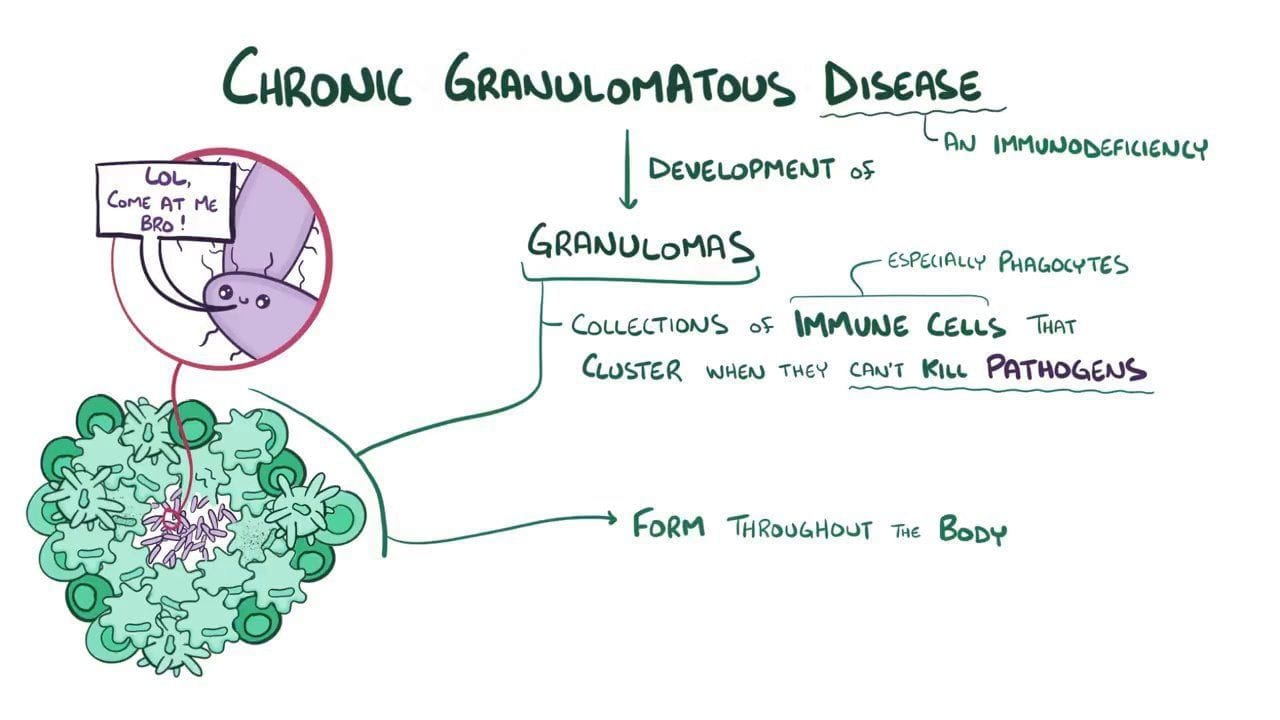 CHRONIC GRANULOMATOUS DISEASE
AN IMMUNODEFICIENCY
DEVELOPMENT OF
LOL,
COME AT ME
BRO!
GRANULOMAS
ESPECIALLY PHAGOCYTES
COLLECTIONS OF IMMUNE CELLS THAT
CLUSTER WHEN THEY CAN'T KILL PATHOGENS
FORM THROUGHOUT THE BODY